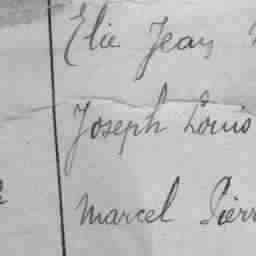 Elie Jean
Joseph Louis
Marcel Pierr